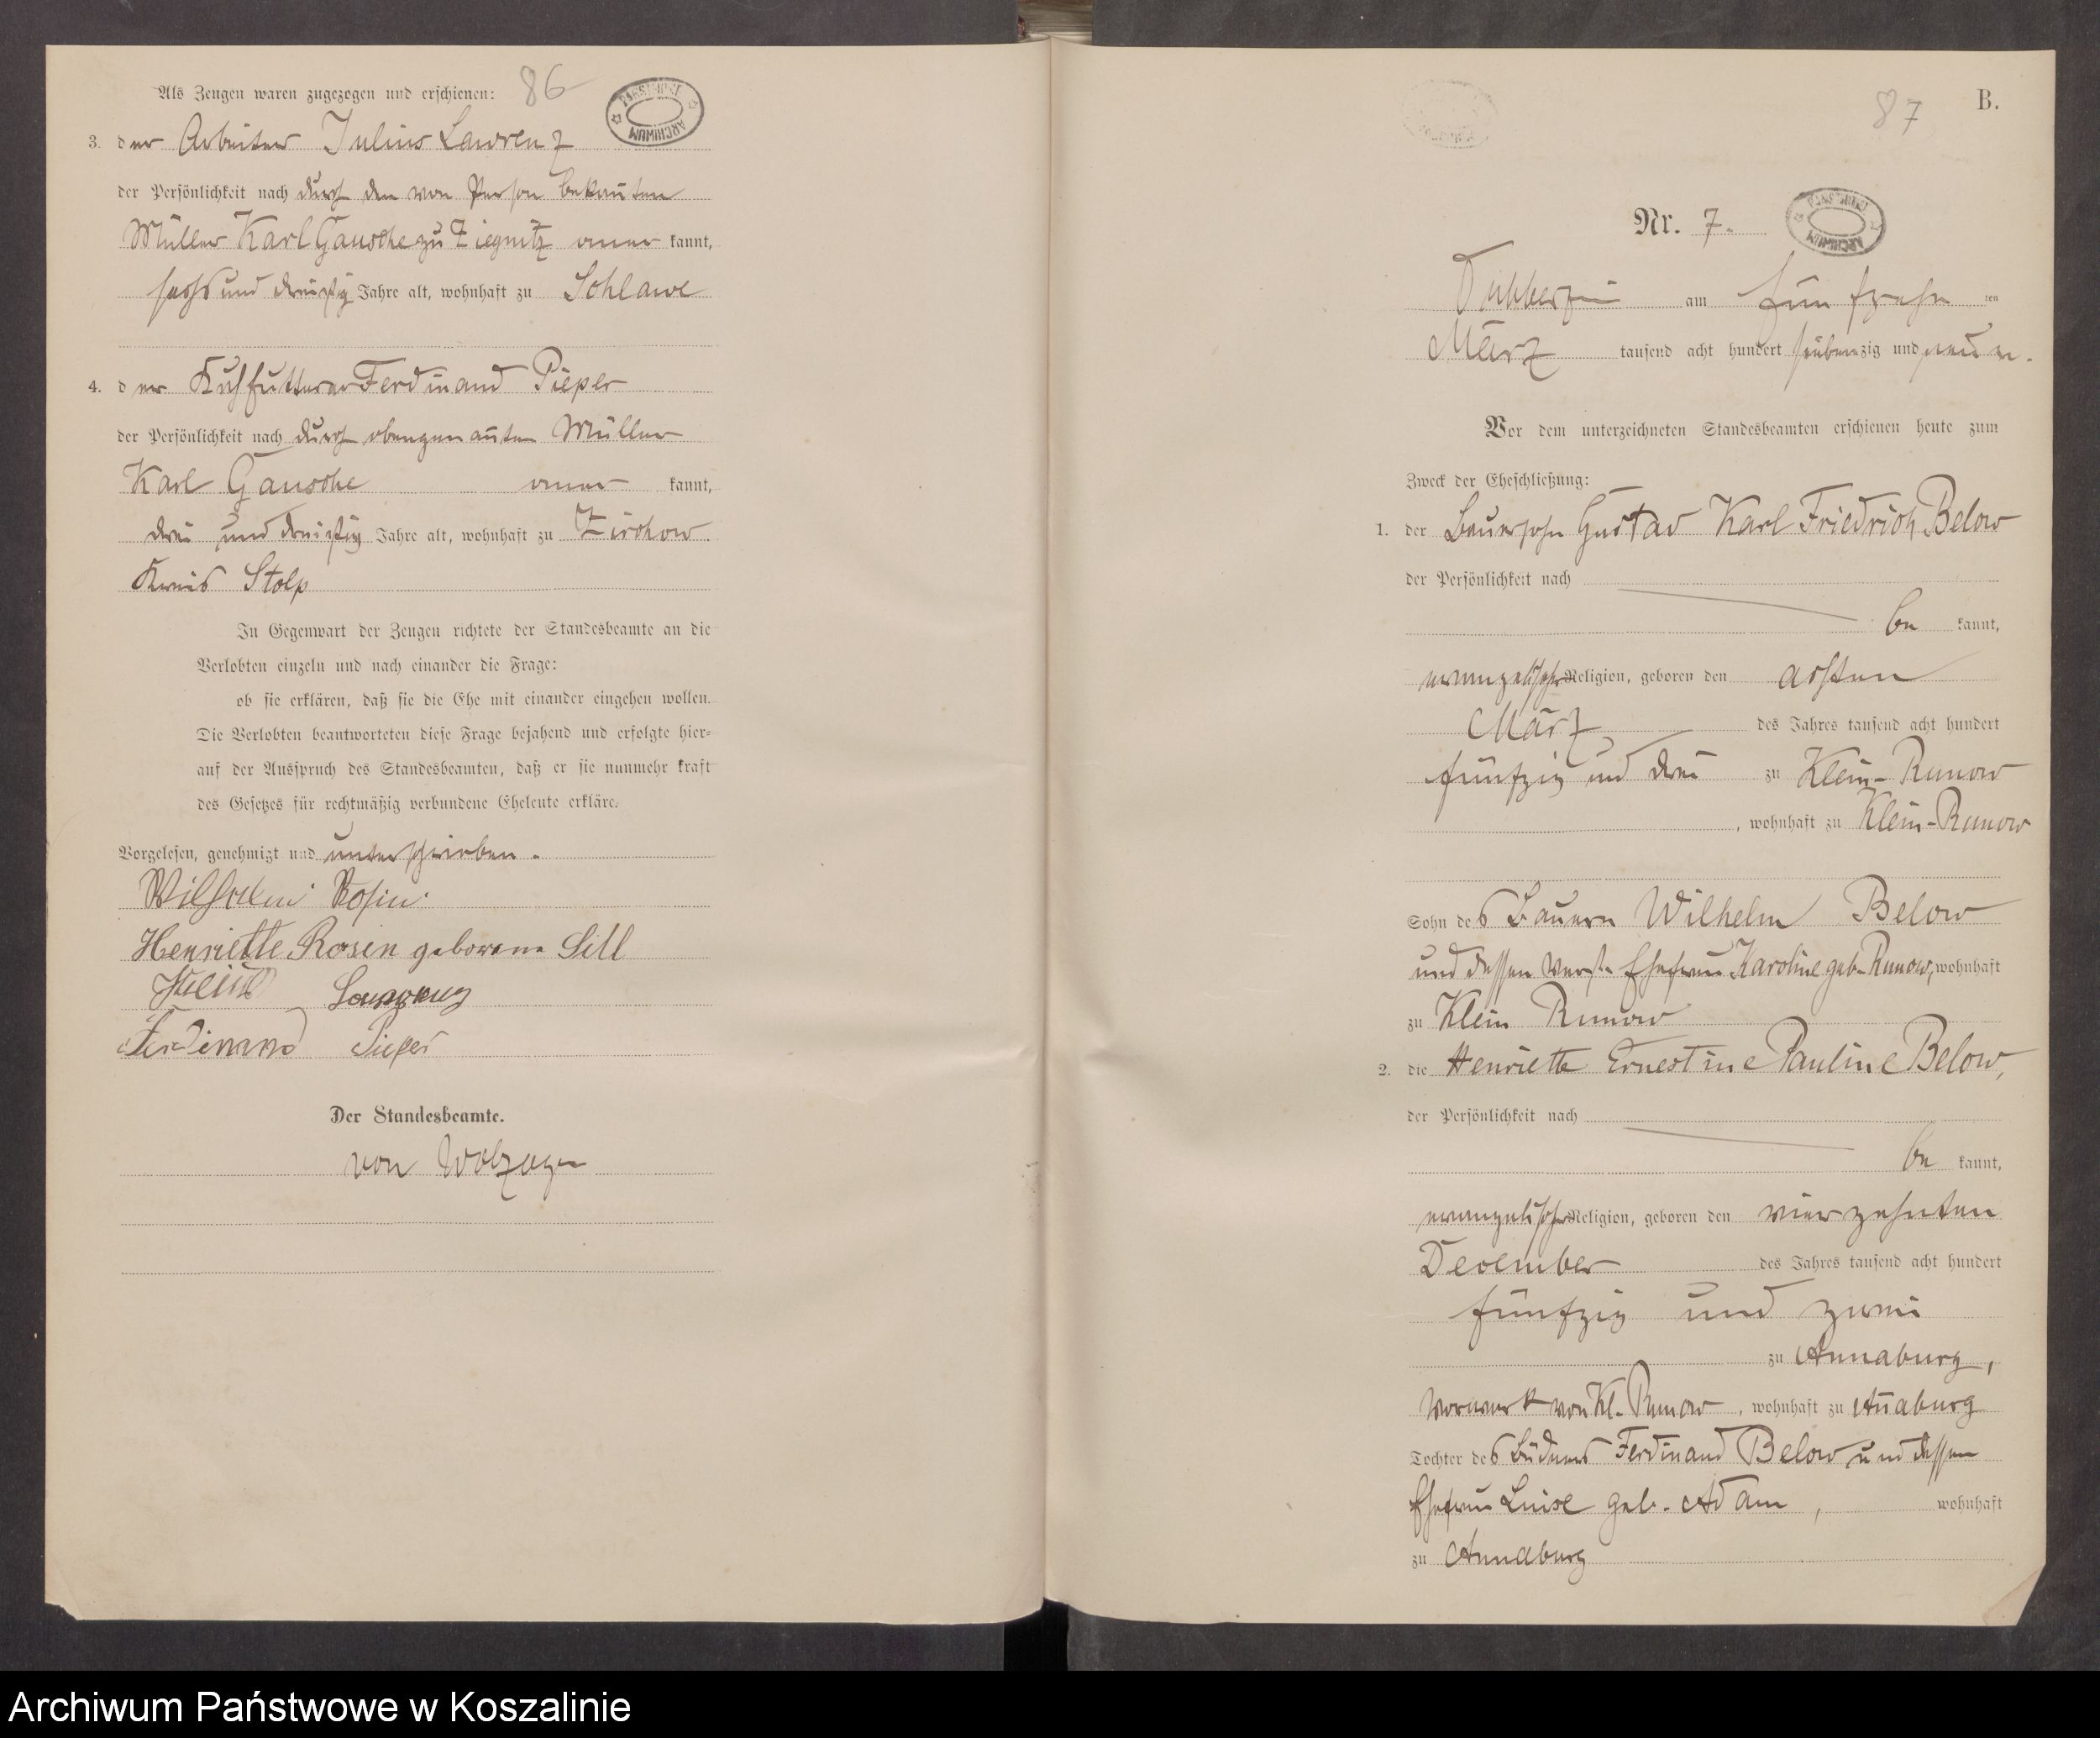 Als Zeugen waren zugezogen und erschienen:
86
PAŃSTWOWE ARCHIWUM
3. der Arbeiter Julius Lawrenz
der Persönlichkeit nach durch den von Person bekañten
Müller Karl Gansche zu Ziegnitz aner kannt,
sechs und dreißig Jahre alt, wohnhaft zu Schlawe
4. der Kuhfutterer Ferdinand Pieper
der Persönlichkeit nach durch obengenañten Müller
Karl Gansche aner kannt,
drei und dreißig Jahre alt, wohnhaft zu Zirchow
Kreis Stolp
In Gegenwart der Zeugen richtete der Standesbeamte an die
Verlobten einzeln und nach einander die Frage:
ob sie erklären, daß sie die Ehe mit einander eingehen wollen.
Die Verlobten beantworteten diese Frage bejahend und erfolgte hier-
auf der Ausspruch des Standesbeamten, daß er sie nunmehr kraft
des Gesetzes für rechtmäßig verbundene Eheleute erkläre.
Vorgelesen, genehmigt und unterschrieben.
Wilhelm Rosin.
Henriette Rosin geborene Sill
Julius Lawrenz
Ferdinand Pieper
Der Standesbeamte.
von Wolzogen
B.
87
Nr. 7.
PAŃSTWOWE ARCHIWUM
am fünfzehn ten
März tausend acht hundert siebenzig und neun.
Vor dem unterzeichneten Standesbeamten erschienen heute zum
Zweck der Eheschließung:
1. der Bauersohn Gustav Karl Friedrich Below
der Persönlichkeit nach
be kannt,
evangelischer Religion, geboren den achten
März des Jahres tausend acht hundert
fünfzig und drei zu Klein-Runow
, wohnhaft zu Klein-Runow
Sohn des Bauern Wilhelm Below
und dessen verst. Ehefrau Karoline geb. Runow, wohnhaft
zu Klein Runow
2. die Henriette Ernestine Pauline Below,
der Persönlichkeit nach
be kannt,
evangelischer Religion, geboren den vierzehnten
December des Jahres tausend acht hundert
fünfzig und zwei
zu Annaburg,
Vorwerk von Kl. Runow, wohnhaft zu Añaburg
Tochter des Büdners Ferdinand Below und dessen
Ehefrau Luise geb. Adam, wohnhaft
zu Annaburg
Archiwum Państwowe w Koszalinie